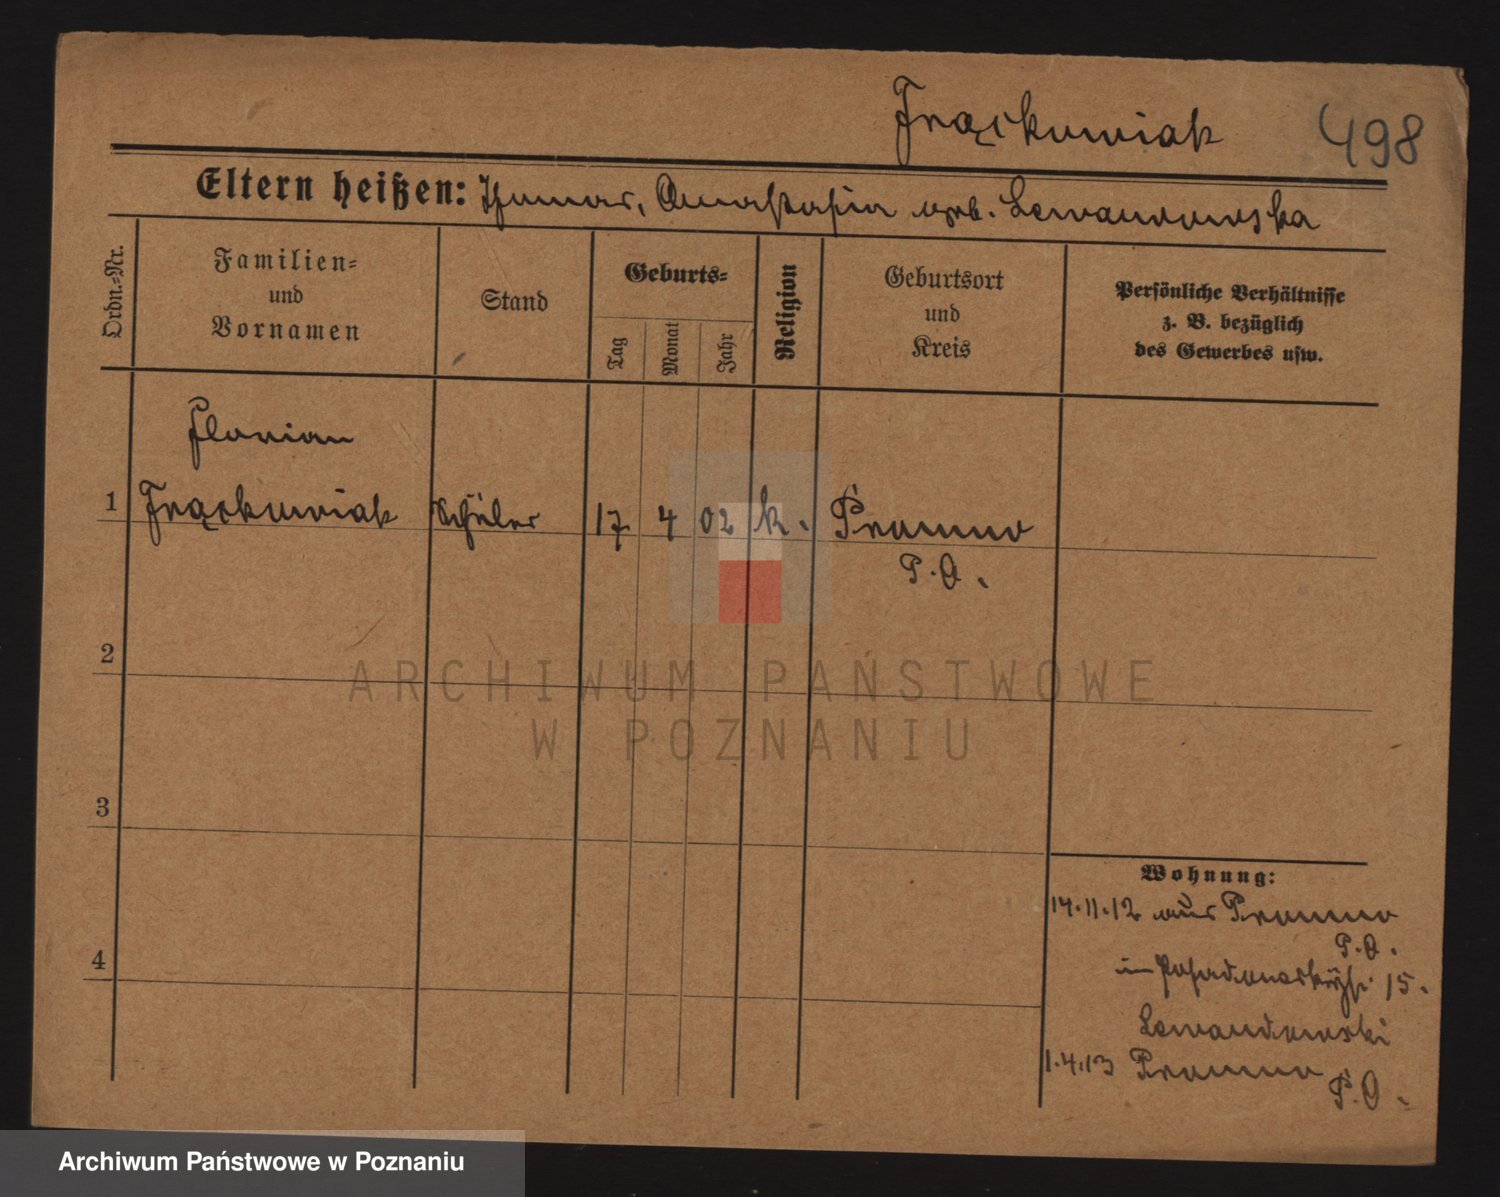 Frąckowiak 498
Eltern heißen: Thomas, Anastasia geb. Lewandowska
Ordn.=Nr.
Familien=
und
Vornamen
Stand
Geburts=
Tag
Monat
Jahr
Religion
Geburtsort
und
Kreis
Persönliche Verhältnisse
z. B. bezüglich
des Gewerbes usw.
Florian
1 Frąckowiak Schüler 17 4 02 k. Promno
P.O.
2
ARCHIWUM PAŃSTWOWE
W POZNANIU
3
Wohnung:
14.11.12 aus Promno
P.O.
4
in 15.
Lewandowski
1.4.13 Promno
P.O.
Archiwum Państwowe w Poznaniu